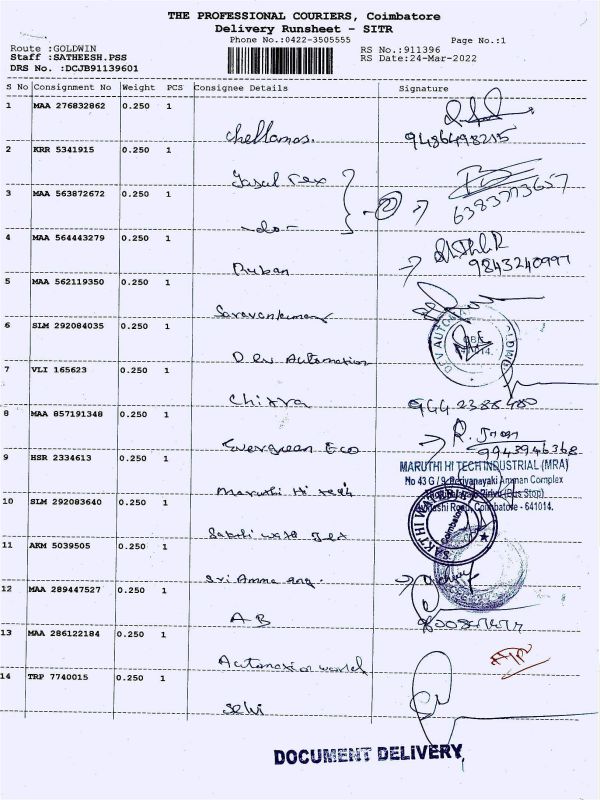 THE PROFESSIONAL COURIERS, Coimbatore
Delivery Runsheet - SITR
Phone No.:0422-3505555
Page No.:1
Route :GOLDWIN
RS No.:911396
Staff :SATHEESH.PSS
RS Date:24-Mar-2022
DRS No. :DCJB91139601
S No Consignment No Weight PCS Consignee Details Signature
1 MAA 276832862 0.250 1
9486498215
2 KRR 5341915 0.250 1
Tex
6383773657
3 MAA 563872672 0.250 1
-do-
4 MAA 564443279 0.250 1
Ruban
9843240997
5 MAA 562119350 0.250 1
Saravankumar
6 SLM 292084035 0.250 1
Dev Automation
7 VLI 165623 0.250 1
Chitra
944 2388480
8 MAA 857191348 0.250 1
Evergreen Eco
9943946368
9 HSR 2334613 0.250 1
Maruthi Hi tech
MARUTHI HI TECH INDUSTRIAL (MRA)
No 43 G / 9, Periyanayaki Amman Complex
(Bus Stop)
Road, Coimbatore - 641014.
10 SLM 292083640 0.250 1
Sakthi
SAKTHI
Coimbatore
11 AKM 5039505 0.250 1
Sri Amma
12 MAA 289447527 0.250 1
AB
13 MAA 286122184 0.250 1
Automation
14 TRP 7740015 0.250 1
Selvi
DOCUMENT DELIVERY